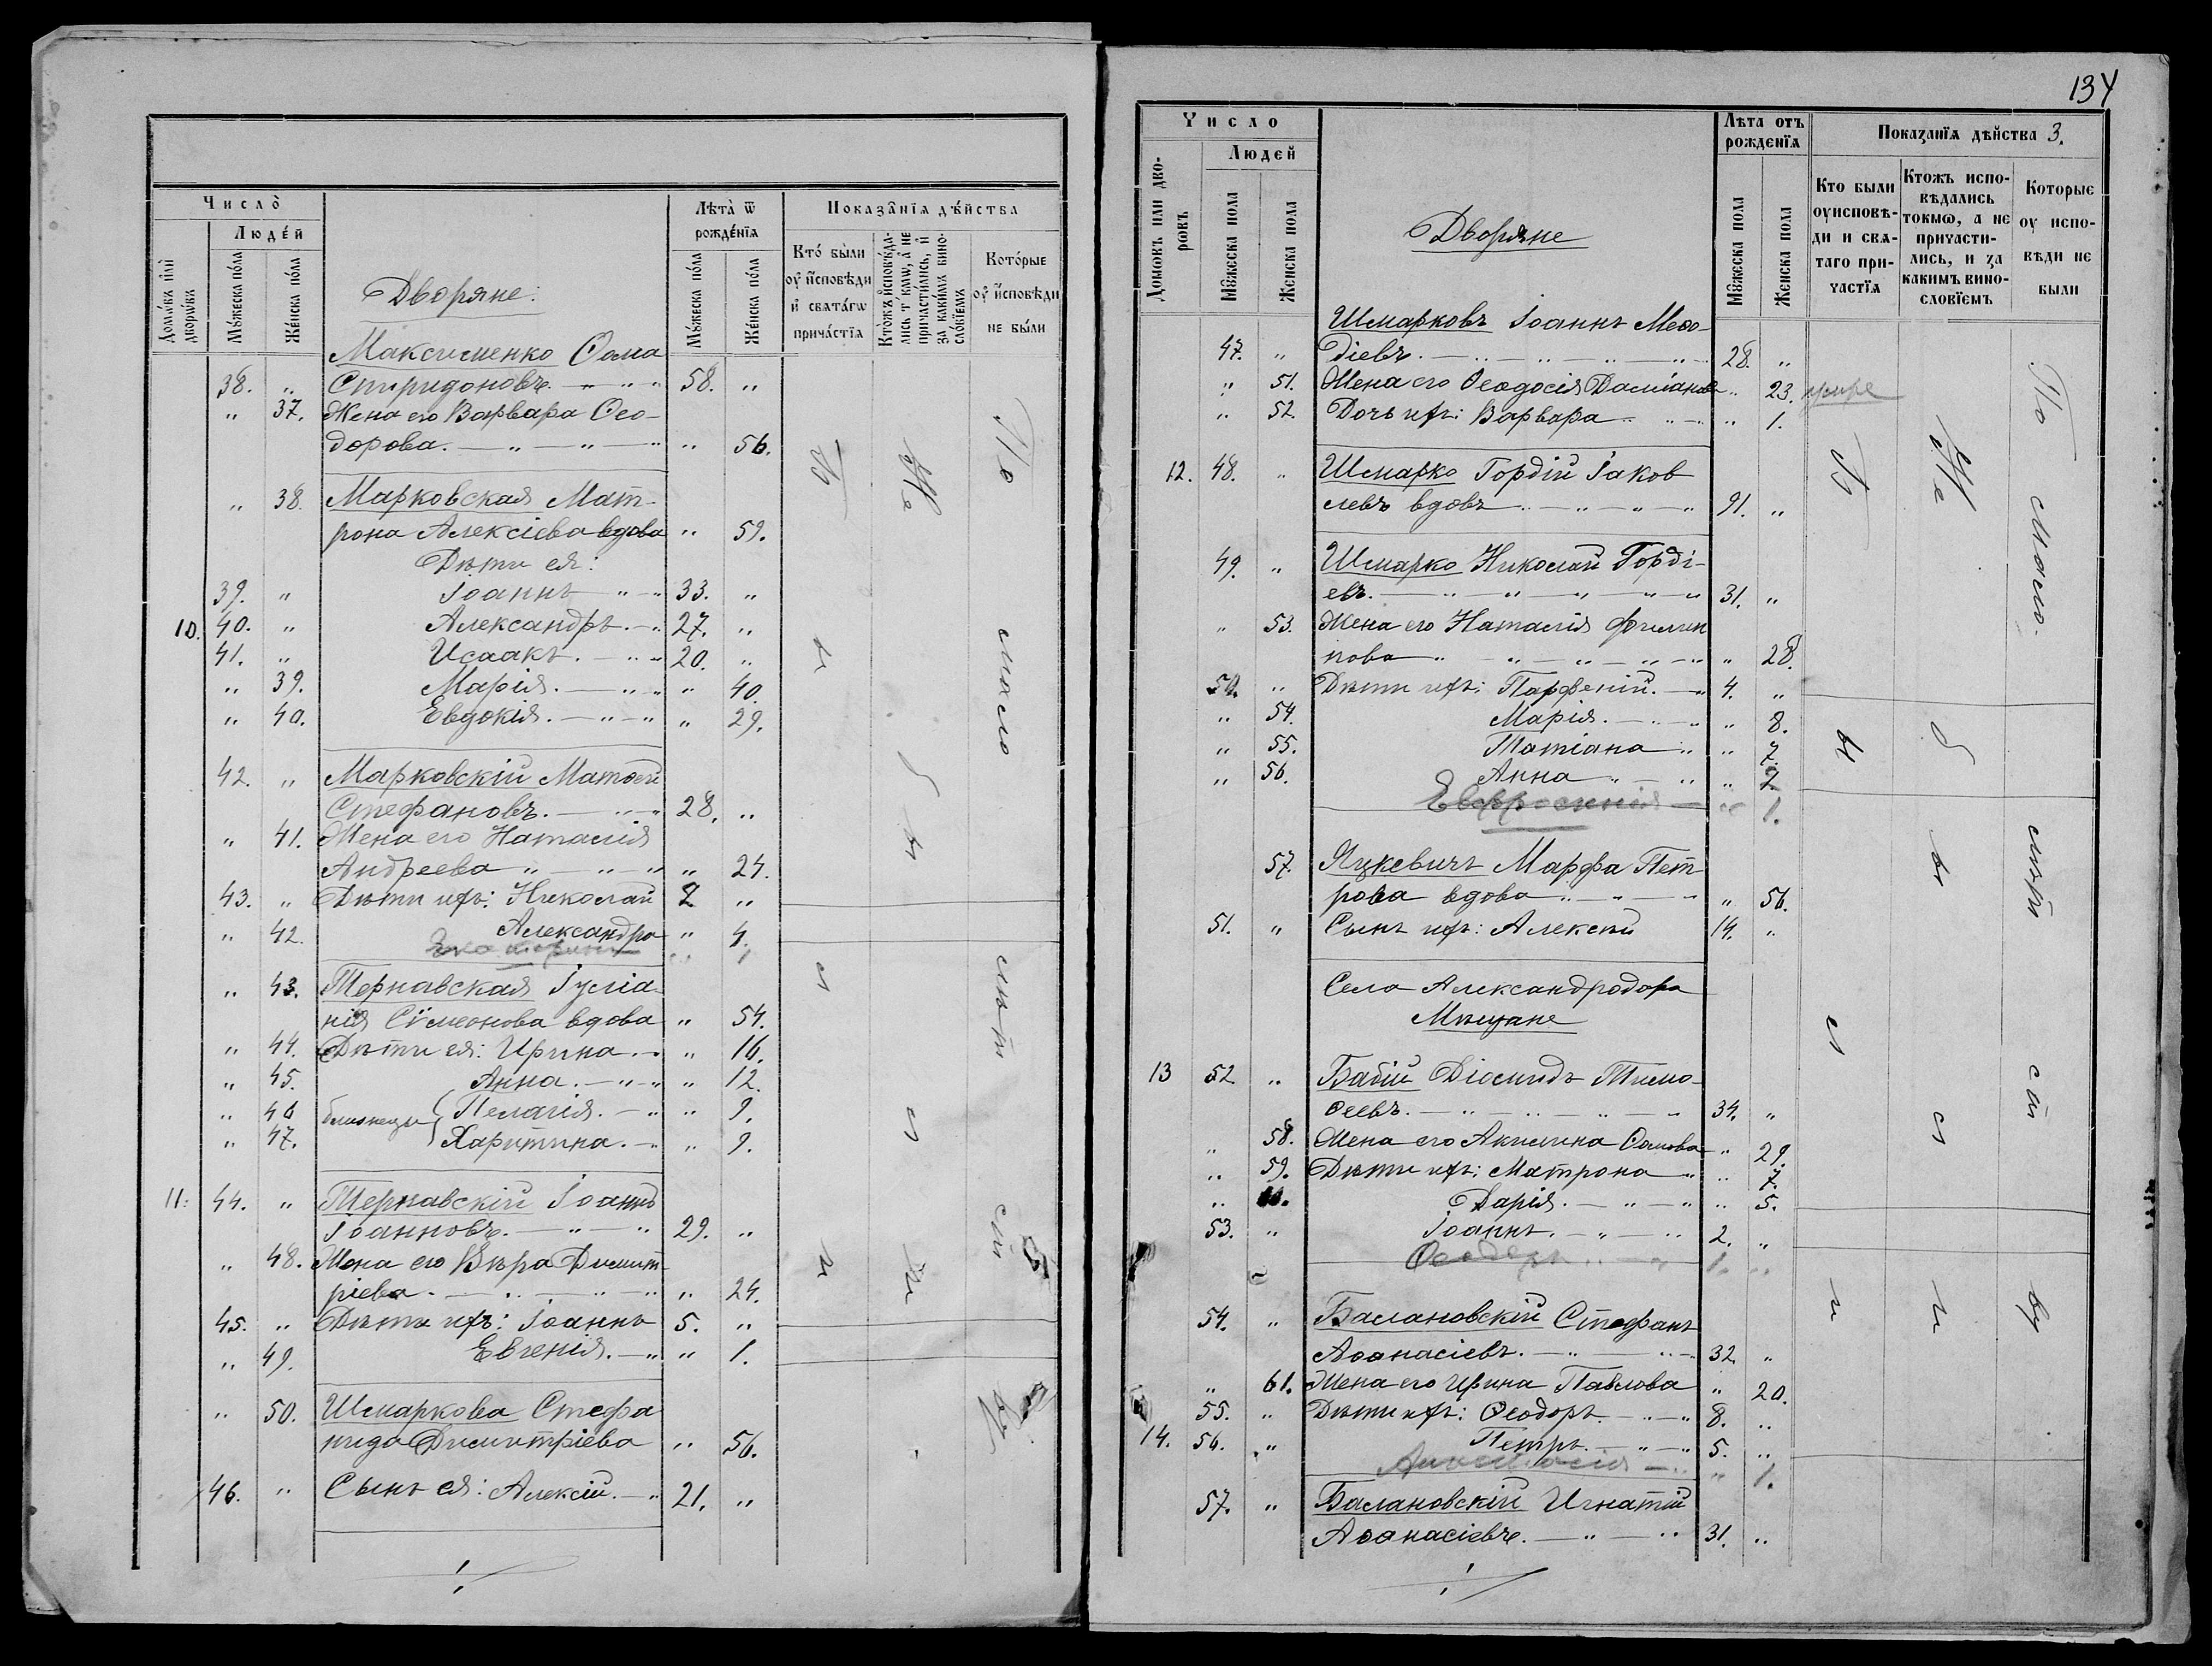 Число̀
Люде́й
Домѡ́въ и҆лѝ дворѡ́въ
Мꙋ́жеска по́ла
Же́нска по́ла
Лѣ́та ѿ рожде́нїѧ
Мꙋ́жеска по́ла
Же́нска по́ла
Показа̑нїѧ дѣ́йства
Кто́ бы́ли ᲂу҆ и҆сповѣ́ди и҆ свата́гѡ прича́стїѧ
Кто́жъ и҆сповѣ́дались т кмѡ, а҆ не причасти́лись, и҆ за каки́мъ вино-сло́вїемъ
Кото́рые ᲂу҆ и҆сповѣ́ди не бы́ли
Дворяне:
Максименко Ѳома
38. „ Спиридоновъ. — „ „ 58. „
„ 37. Жена его Варвара Ѳео-
дорова. — „ — „ — „ „ 56.
„ 38. Марковская Мат-
рона Алексіева вдова „ 59.
Дѣти ея:
39. „ Іоаннъ — „ — „ 33. „
10. 40. „ Александръ. — „ 27. „
41. „ Исаакъ. — „ — „ 20. „
„ 39. Марія. — „ — „ „ 40.
„ 40. Евдокія. — „ — „ „ 29.
42. „ Марковскій Матѳей
Стефановъ. — „ — „ 28. „
„ 41. Жена его Наталія
Андреева „ — „ — „ „ 24.
43. „ Дѣти ихъ: Николай 2 „
„ 42. Александра „ 4.
Екатерина
„ 43. Тернавская Іуліа-
нія Сѵмеонова вдова „ 54.
„ 44. Дѣти ея: Ирина. — „ „ 16.
„ 45. Анна. — „ — „ „ 12.
„ 46 близнецы Пелагія. — „ „ 9.
„ 47. Харитина. — „ „ 9.
11. 44. „ Тернавскій Іоаннъ
Іоанновъ. — „ — „ 29. „
„ 48. Жена его Вѣра Димит-
ріева. — „ — „ — „ „ 24.
45. „ Дѣти ихъ: Іоаннъ 5. „
„ 49. Евгенія. — „ „ 1.
„ 50. Шмаркова Стефа
нида Димитріева „ 56.
46. „ Сынъ ея: Алексій. — „ 21. „
134
Число
Людей
Домовъ или дво-рѡвъ
Мꙋжеска пола
Женска пола
Лѣта отъ рожденїѧ
Мꙋжеска пола
Женска пола
Показанїѧ дѣйства 3.
Кто были оуисповѣ-ди и свѧ-таго при-частїѧ
Ктожъ испо-вѣдались токмѡ, а не причасти-лись, и за какимъ вино-словїемъ
Которые оу испо-вѣди не были
Дворяне
Шмарковъ Іоаннъ Меѳо-
47. „ діевъ. — „ — „ — „ — „ 28. „
„ 51. Жена его Ѳеодосія Даміанова „ 23.
„ 52. Дочь ихъ: Варвара — „ — „ „ 1.
12. 48. „ Шмарко Гордій Іаков
левъ вдовъ — „ — „ — „ 91. „
49. „ Шмарко Николай Горді-
евъ. — „ — „ — „ — „ 31. „
„ 53. Жена его Наталія Филип
пова — „ — „ — „ — „ „ 28.
50. „ Дѣти ихъ: Парфеній. — „ 4. „
„ 54. Марія. — „ — „ „ 8.
„ 55. Татіана — „ „ 7.
„ 56. Анна — „ — „ „ 2
Евфросинія — „ 1.
57. Яцкевичъ Марфа Пет
рова вдова — „ — „ „ 56.
51. „ Сынъ ихъ: Алексій 14. „
Села Александродара
Мѣщане
13 52 „ Бабій Діомидъ Тимо-
ѳеевъ. — „ — „ — „ — „ 34. „
„ 58. Жена его Акилина Ѳомова „ 29.
„ 59. Дѣти ихъ: Матрона — „ „ 7.
„ Дарія. — „ — „ „ 5.
53. „ Іоаннъ. — „ — „ 2. „
Ѳеодоръ „ — „ 1. „
54. „ Баслановскій Стефанъ
Аѳанасіевъ. — „ — „ 32. „
„ 61. Жена его Ирина Павлова „ 20.
55. „ Дѣти ихъ: Ѳеодоръ. — „ — „ 8. „
14. 56. „ Петръ. — „ — „ 5. „
Анастасія — „ „ 1.
57. „ Баслановскій Игнатій
Аѳанасіевъ. — „ — „ 31. „